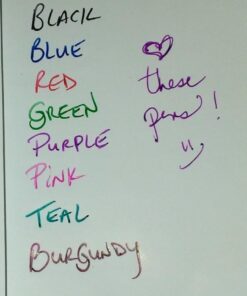 BLACK
BLUE
RED
GREEN
PURPLE
PINK
TEAL
BURGUNDY
♡ these
pens!